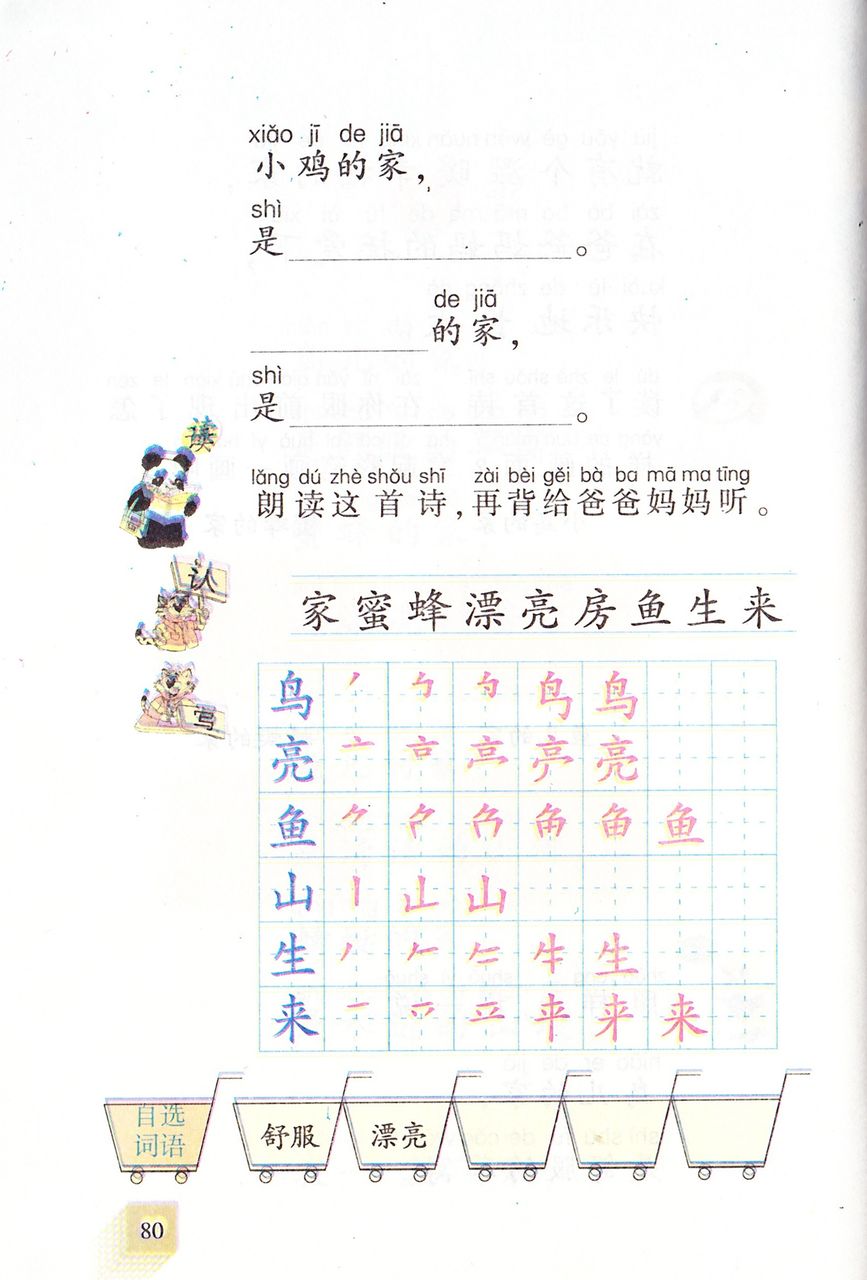 xiǎo jī de jiā
小鸡的家，
shì
是____________________。
de jiā
____________的家，
shì
是____________________。
读
lǎng dú zhè shǒu shī zài bèi gěi bà ba mā ma tīng
朗读这首诗，再背给爸爸妈妈听。
认
家蜜蜂漂亮房鱼生来
写
鸟 鸟 鸟
亮 亮
鱼 鱼
山 山
生 牛 生
来 来
自选
词语
舒服 漂亮
80